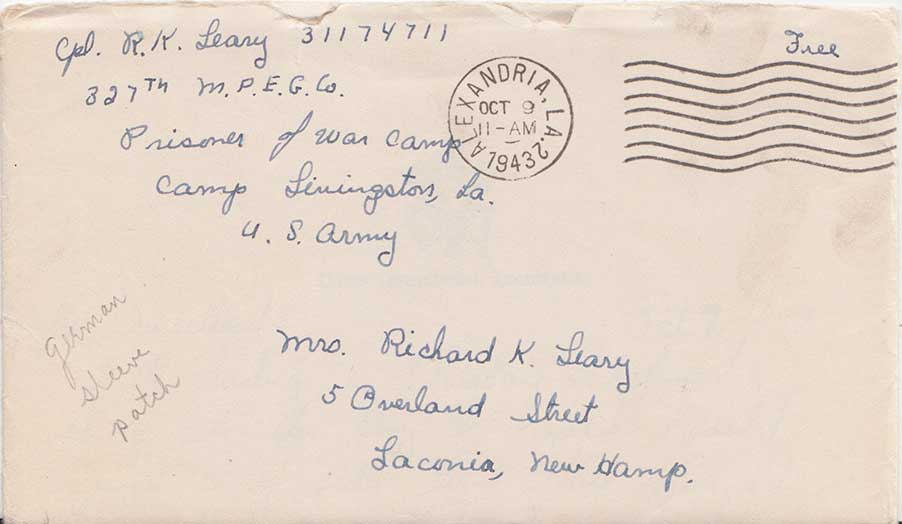 Cpl. R. K. Leary 31174711
327TH M. P. E. G. Co.
Prisoner of War Camp
Camp Livingston, La.
U. S. Army
Free
ALEXANDRIA, LA. 2
OCT 9
11-AM
1943
German
sleeve
patch
Mrs. Richard K. Leary
5 Overland Street
Laconia, New Hamp.